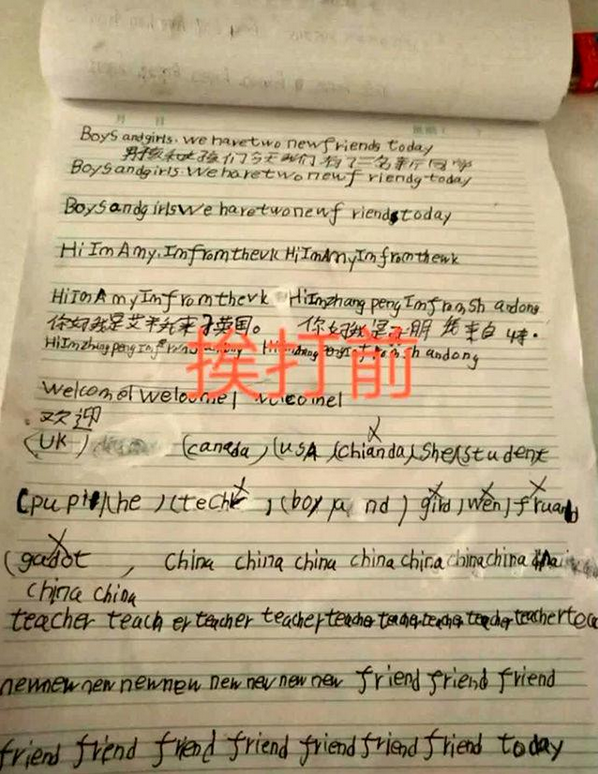 月 日
Boys and girls. we have two new friends today
男孩和女孩们今天我们有了二名新同学
Boys and girls. We have two new f riendg today
Boys and g irls We have two new f riends today
Hi Im Amy. Im from the vk Hi Im Amy Im from the wk
Hi Im A my Im from the vk Hi Im zhang peng Im from Sh andong
你好我是艾米 来子英国。 你好我是 朋 来自
Hi Im zhing peng Im from Hi Im peng Im from sh andong
挨打前
Welcome! Welcome! Welcome!
欢迎
(UK) (canada) (USA (chianda) She (student
(pu pil) he ) (teche ) (boy nd) gird) wen) fruand
(gadot , China china china china china china china
china china
teacher teach er teacher teacher teacher teacher teacher teacher teacher teacher tea
new new new new new new new new new friend friend friend
friend friend friend friend friend friend friend today